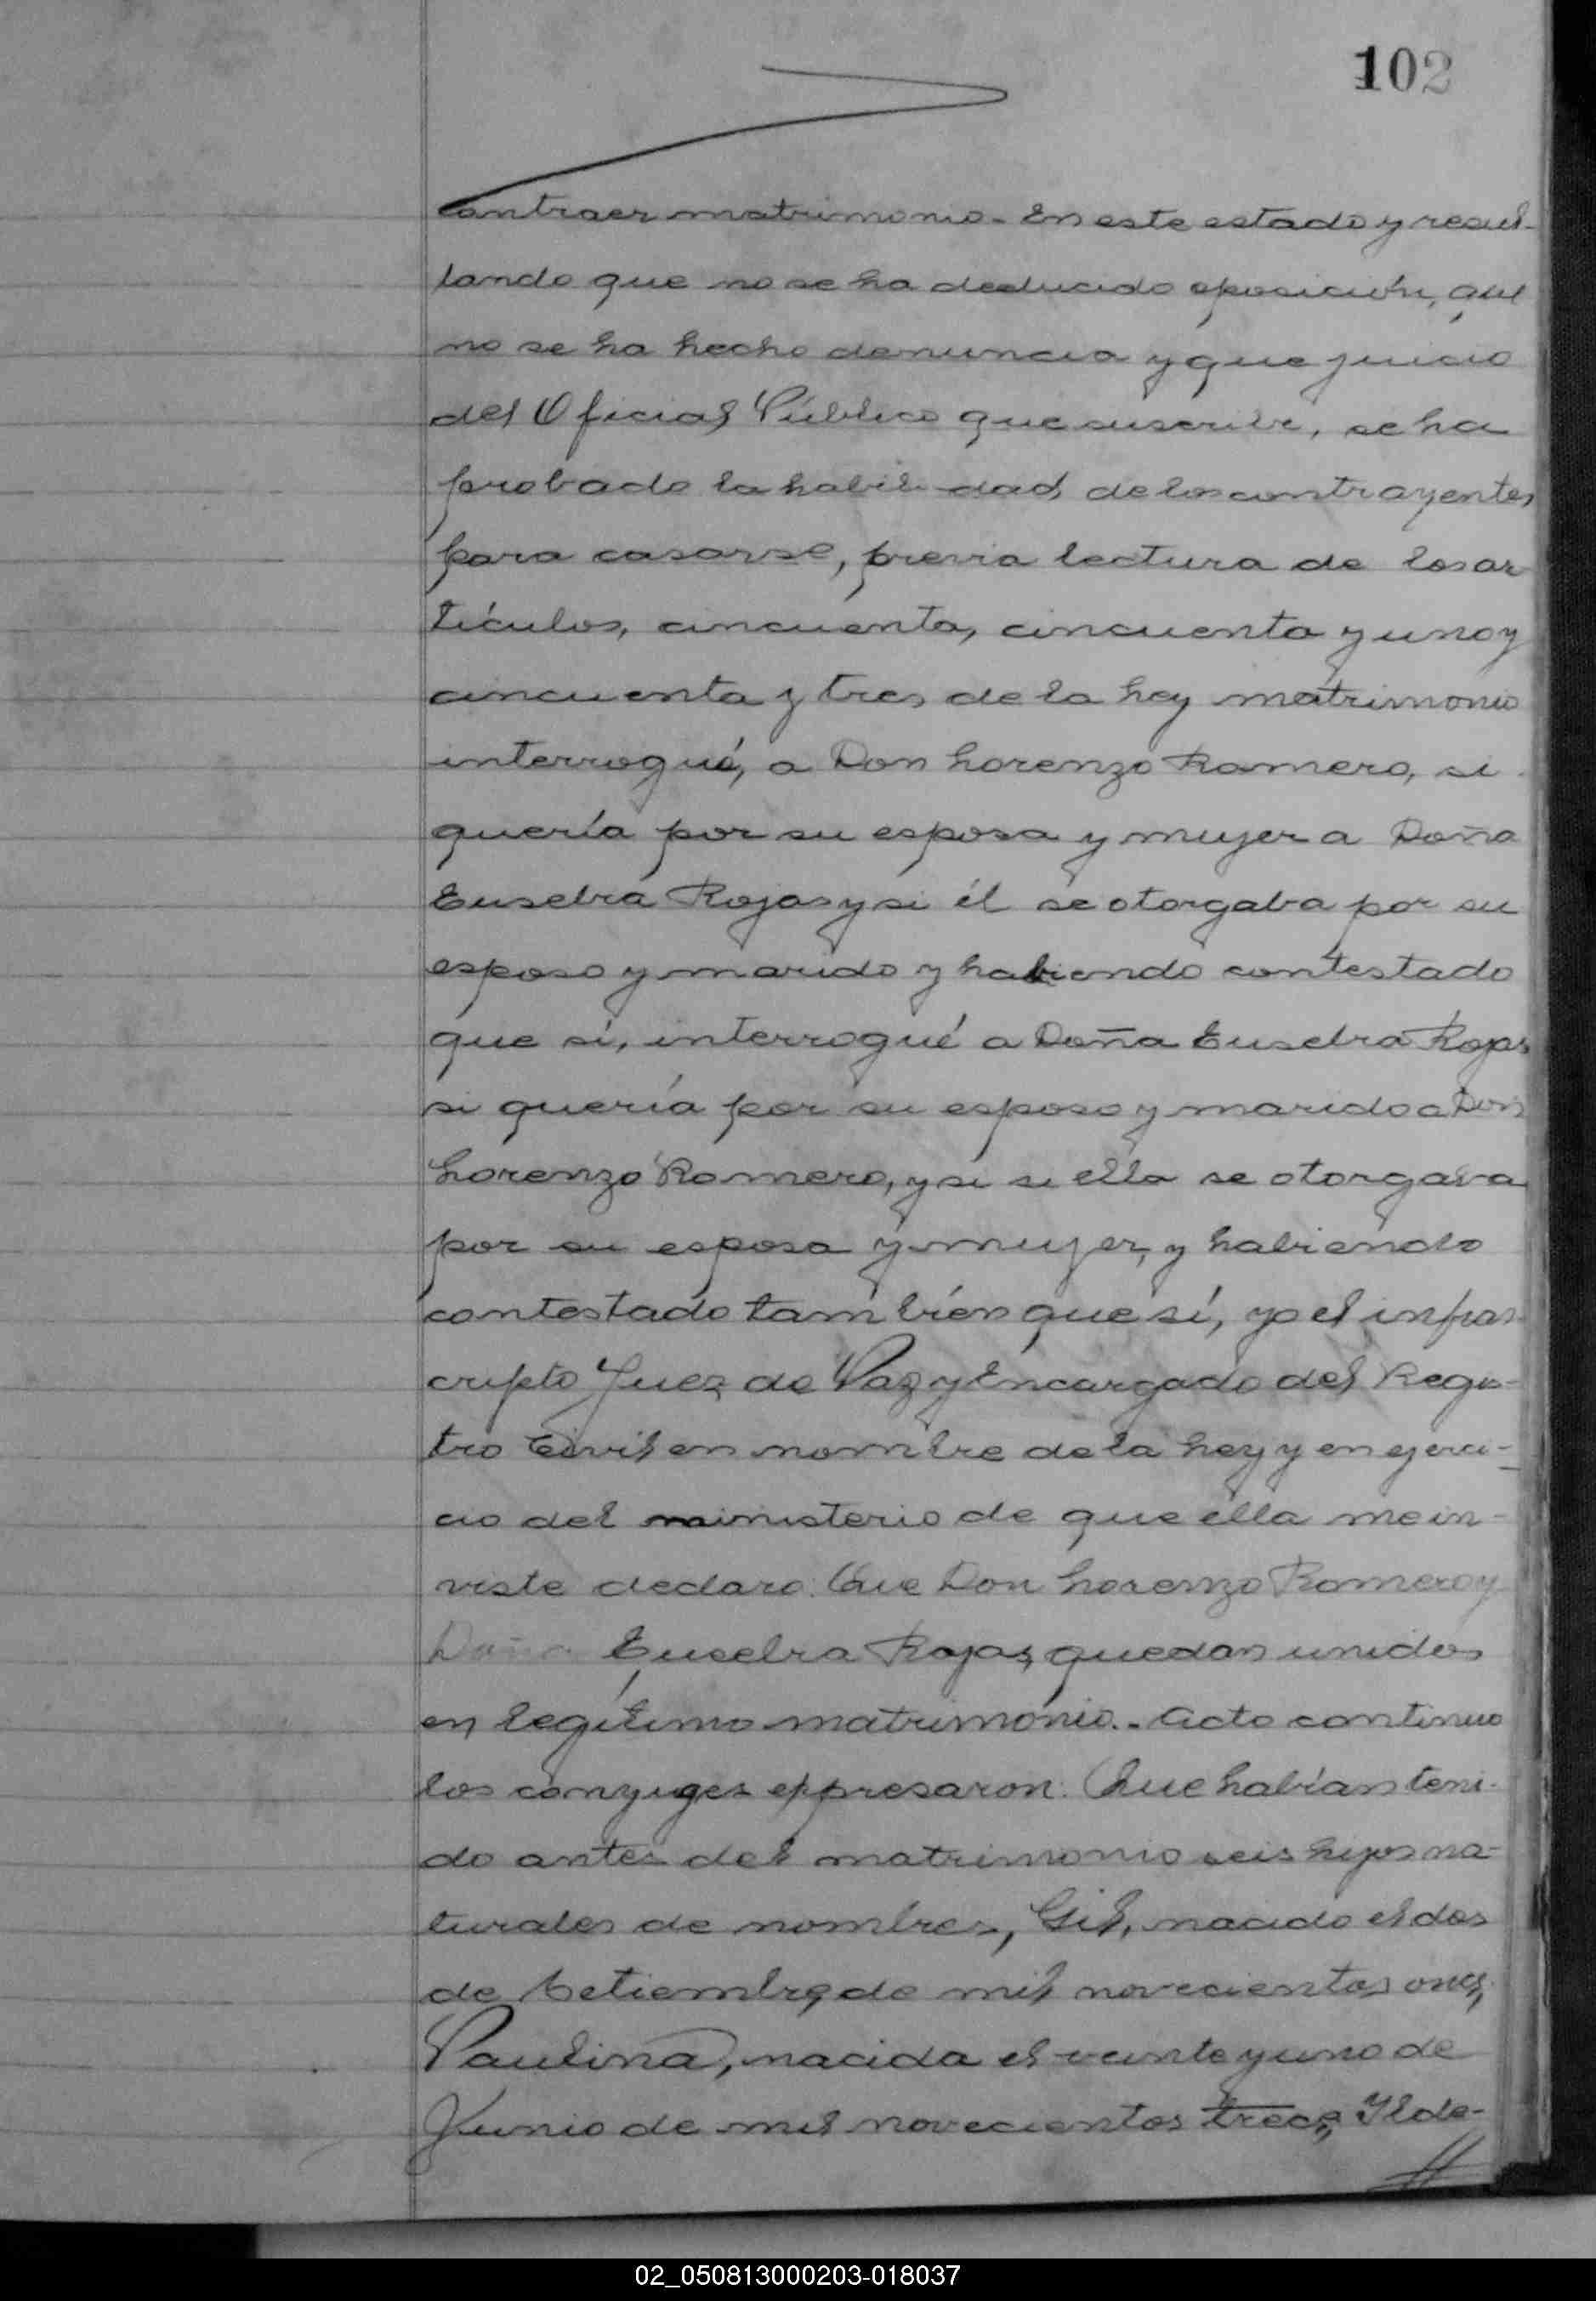 102
contraer matrimonio. En este estado y resul-
tando que no se ha deducido oposición, que
no se ha hecho denuncia y que juicio
del Oficial Público que suscribe, se ha
probado la habilidad de los contrayentes
para casarse, previa lectura de los ar
tículos, cincuenta, cincuenta y uno y
cincuenta y tres de la Ley matrimonio
interrogué, a Don Lorenzo Romero, si
quería por su esposa y mujer a Doña
Eusebia Rojas y si él se otorgaba por su
esposo y marido y habiendo contestado
que sí, interrogué a Doña Eusebia Rojas
si quería por su esposo y marido a Don
Lorenzo Romero, y si si ella se otorgaba
por su esposa y mujer, y habiendo
contestado también que sí, yo el infras-
cripto Juez de Paz y Encargado del Regis-
tro Civil en nombre de la Ley y en ejerci-
cio del ministerio de que ella me in-
viste declaro: Que Don Lorenzo Romero y
Doña Eusebia Rojas, quedan unidos
en legítimo matrimonio.. Acto continuo
los cónyuges expresaron: Que habían teni-
do antes del matrimonio seis hijos na-
turales de nombres, Gil, nacido el dos
de Setiembre de mil novecientos once,
Paulina, nacida el veinte y uno de
Junio de mil novecientos trece, Ilde-
02_050813000203-018037